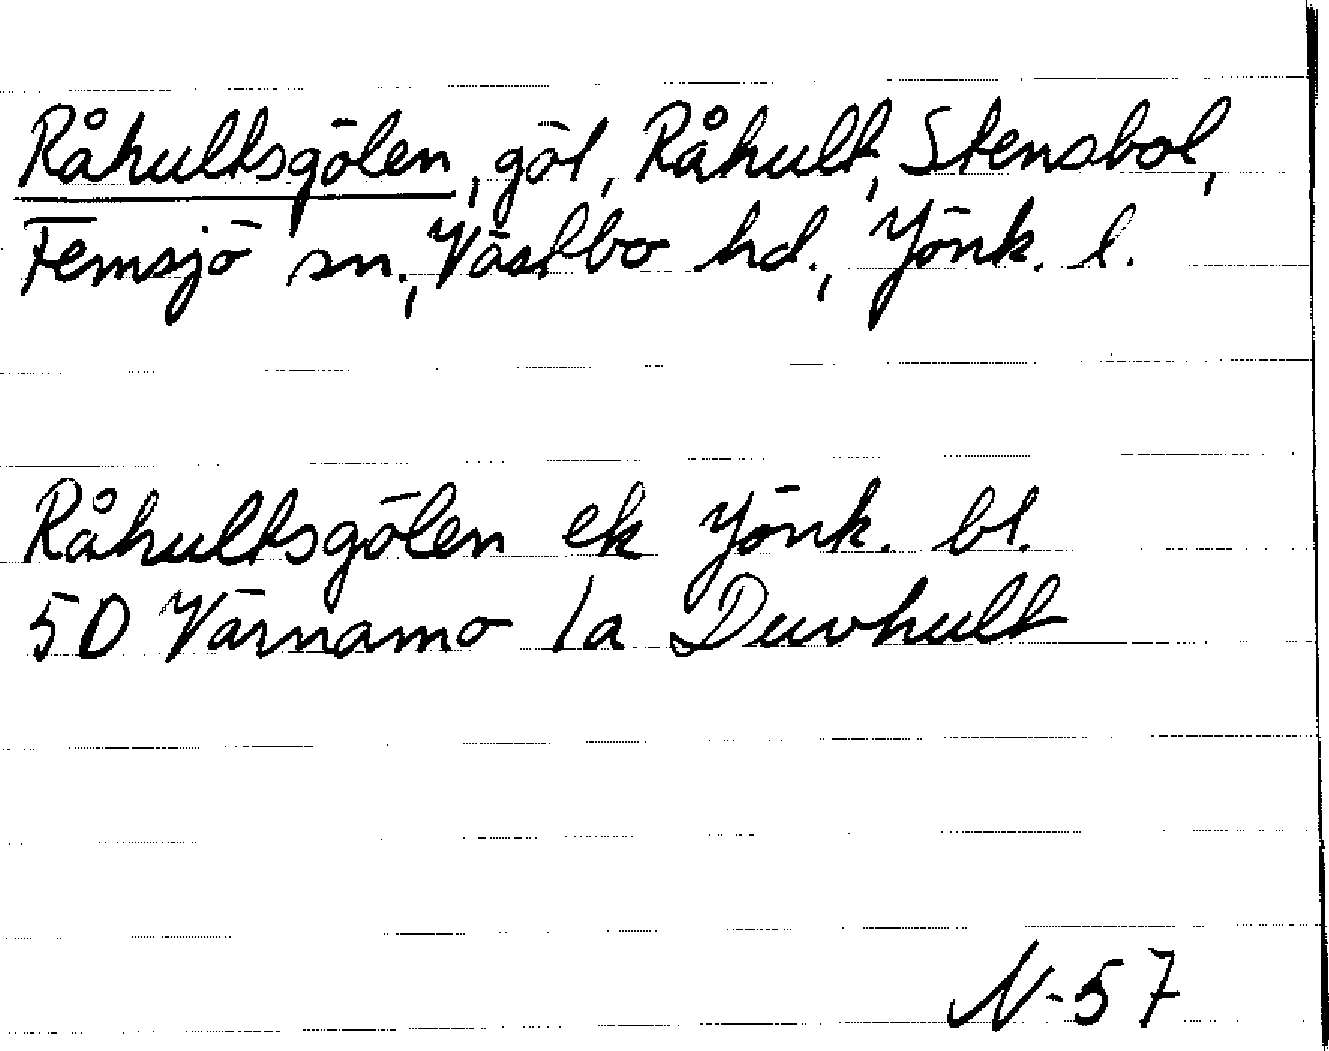 Råhultsgölen, göl, Råhult, Stensbol,
Femsjö sn., Västbo hd., Jönk. l.
Råhultsgölen ek Jönk. bl.
5D Värnamo 1a Duvhult
N-57